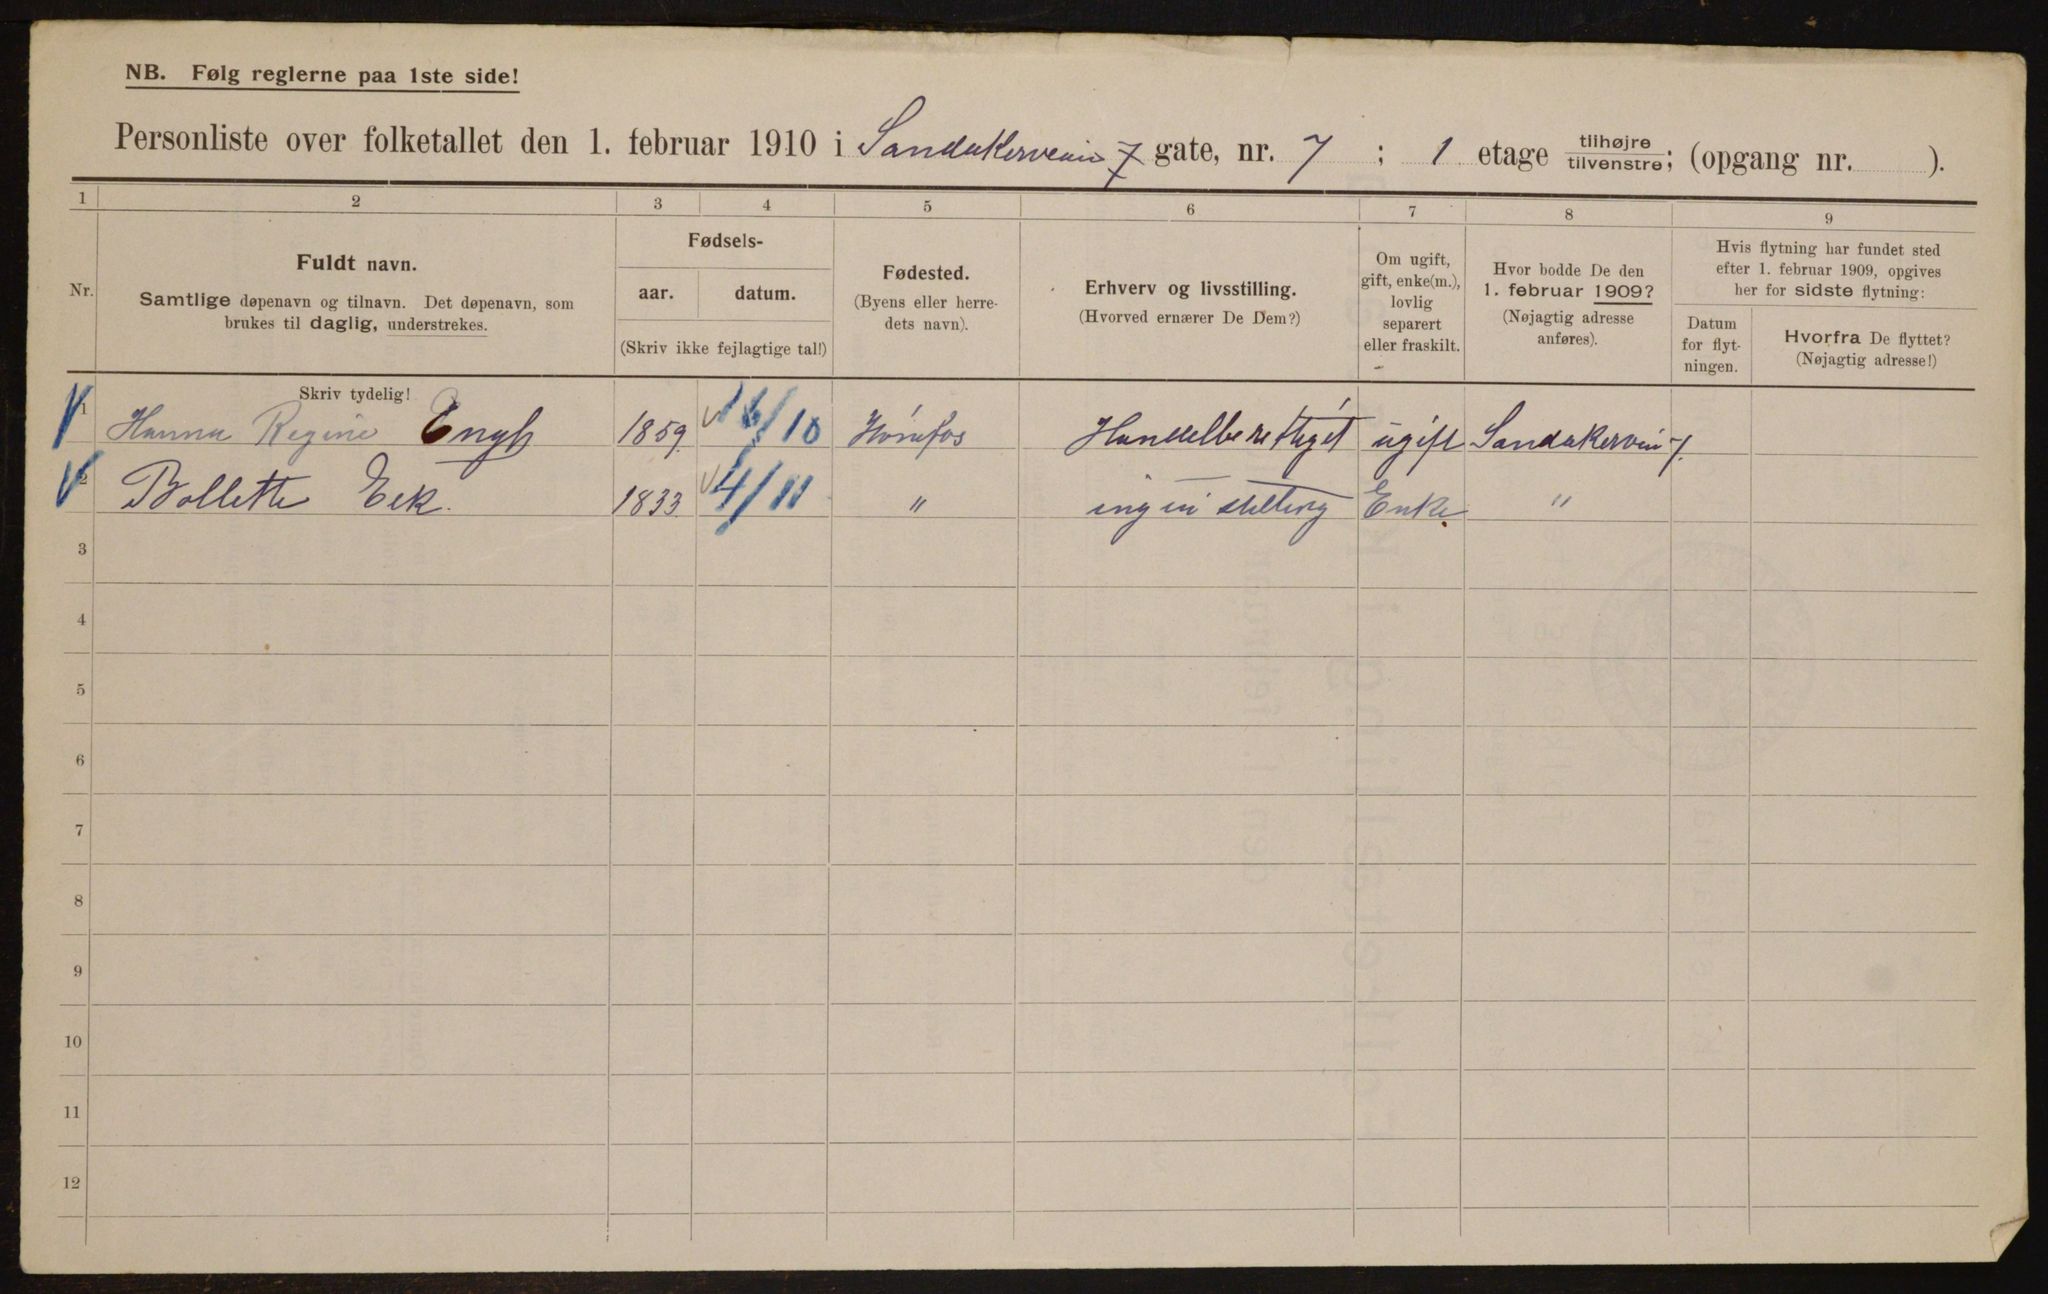 NB. Følg reglerne paa 1ste side!
Personliste over folketallet den 1. februar 1910 i Sandakerveien 7 gate, nr. 7 ; 1 etage tilhøjre tilvenstre; (opgang nr. ).
1 2 3 4 5 6 7 8 9
Nr.
Fuldt navn.
Samtlige døpenavn og tilnavn. Det døpenavn, som
brukes til daglig, understrekes.
Fødsels-
aar. datum.
(Skriv ikke fejlagtige tal!)
Fødested.
(Byens eller herre-
dets navn).
Erhverv og livsstilling.
(Hvorved ernærer De Dem?)
Om ugift,
gift, enke(m.),
lovlig
separert
eller fraskilt.
Hvor bodde De den
1. februar 1909?
(Nøjagtig adresse
anføres).
Hvis flytning har fundet sted
efter 1. februar 1909, opgives
her for sidste flytning:
Datum
for flyt-
ningen.
Hvorfra De flyttet?
(Nøjagtig adresse!)
Skriv tydelig!
1 Hanna Regine Engh 1859 16/10 Hónefos Handelberettiget ugift Sandakervein 7.
2 Bollette Eek. 1833 4/11 " ingen stilling Enke. "
3
4
5
6
7
8
9
10
11
12